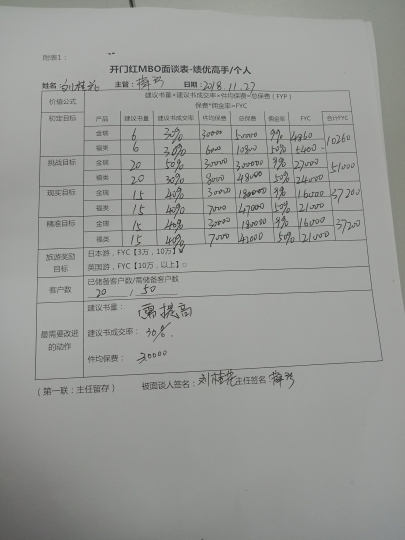 附表1：
开门红MBO面谈表-绩优高手/个人
姓名：刘桂花 主管： 日期：2018.11.27
价值公式 建议书量*建议书成交率*件均保费=总保费（FYP）
保费*佣金率=FYC
初定目标 产品 建议书量 建议书成交率 件均保费 总保费 佣金率 FYC 合计FYC
金瑞 6 30% 30000 50000 9% 4860 10260
福类 6 30% 6000 10800 50% 5400
挑战目标 金瑞 20 50% 30000 300000 9% 27000 51000
福类 20 30% 8000 48000 50% 24000
现实目标 金瑞 15 40% 30000 180000 9% 16000 37200
福类 15 40% 7000 47000 50% 21000
精准目标 金瑞 15 40% 30000 180000 9% 16000 37200
福类 15 40% 7000 42000 50% 21000
旅游奖励目标 日本游，FYC【3万，10万】
英国游，FYC【10万，以上】□
客户数 已储备客户数/需储备客户数
20 / 50
最需要改进的动作 建议书量：需提高
建议书成交率：30%.
件均保费：30000
（第一联：主任留存） 被面谈人签名：刘桂花 主任签名：